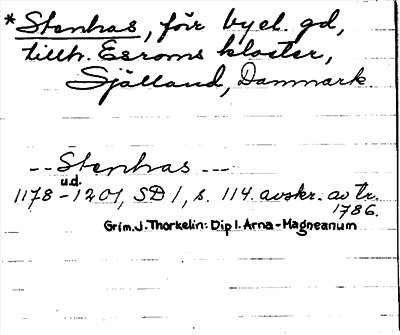 *Stenhas, förr by el. gd,
tillh. Esroms kloster,
Själland, Danmark.
--Stenhas---
u.d.
1178-1201, SD 1, s. 114. avskr. av tr.
1786.
Grim. J. Thorkelin: Dipl. Arna-Magneanum